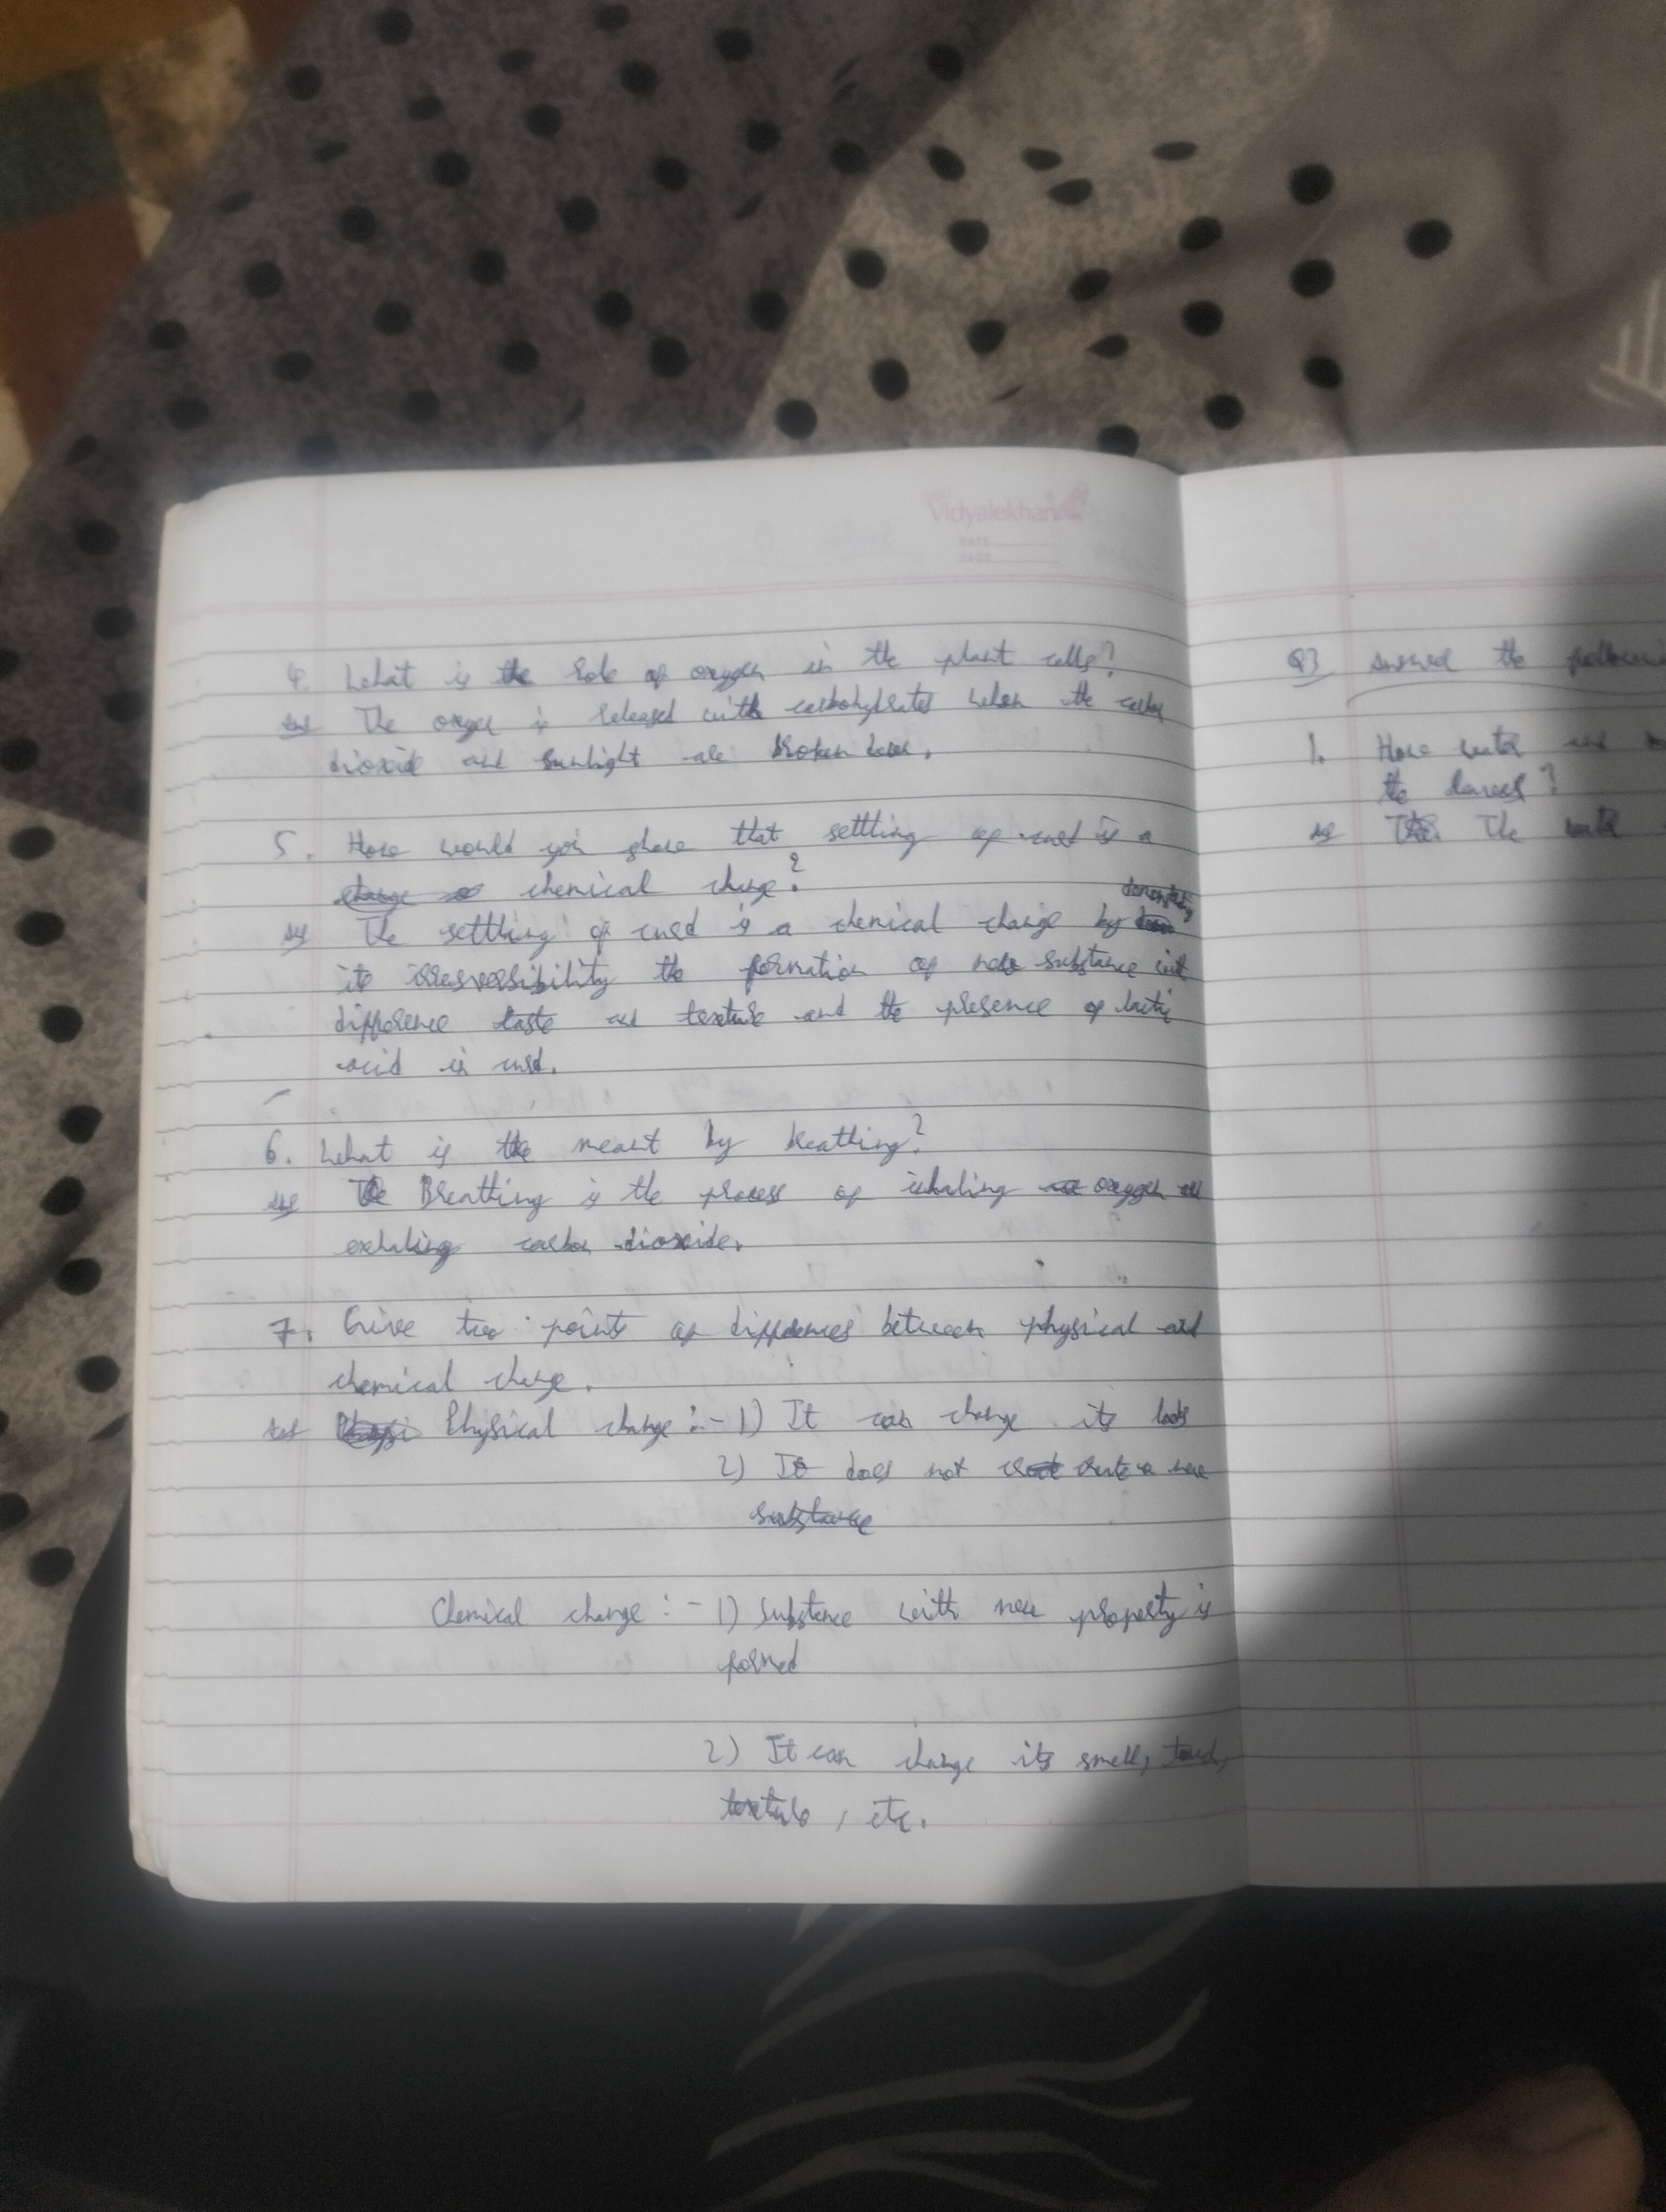 Vidyalekhan
DATE
PAGE
4. What is the role of oxygen in the plant cells?
Ans The oxyge is released with carbohydrates when the carbon
dioxide and sunlight are broken down.
5. How would you show that settling of curd is a
chemical change?
Ans The settling of curd is a chemical change by
its irresversibility the formation of new substance with
difference taste and texture and the presence of lactic
acid in curd.
6. What is the meant by breathing?
Ans The Breathing is the process of inhaling oxygen and
exhaling carbon dioxide.
7. Give two points of differences between physical and
chemical change.
Ans Physical change :- 1) It can change its looks
2) It does not create a new
substance
Chemical change :- 1) Substance with new property is
formed
2) It can change its smell, touch,
texture, etc.
Q3 Answer the
1. How water and
the leaves?
Ans The water